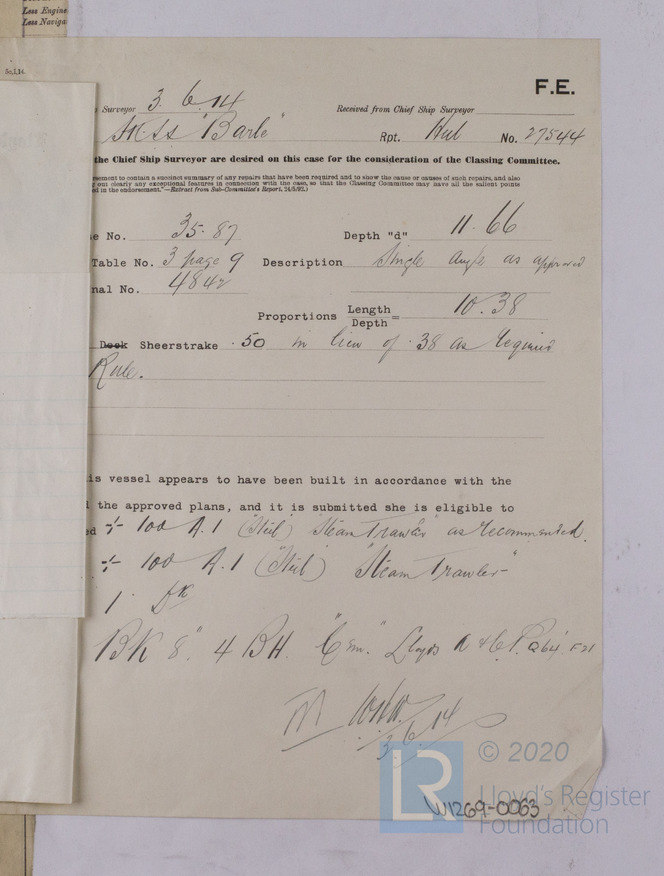 Less Engine
Less Naviga
5c,1,14.
F.E.
Surveyor 3. 6. 14 Received from Chief Ship Surveyor
"Barle" Rpt. Hul No. 27544
the Chief Ship Surveyor are desired on this case for the consideration of the Classing Committee.
rsement to contain a succinct summary of any repairs that have been required and to show the cause or causes of such repairs, and also
out clearly any exceptional features in connection with the case, so that the Classing Committee may have all the salient points
ed in the endorsement."—Extract from Sub-Committee's Report, 24/5/82.)
e No. 35.87 Depth "d" 11.66
Table No. 3 page 9 Description Single angle as approved
nal No. 4842
Proportions Length/Depth = 10.38
Deck Sheerstrake .50 in lieu of .38 as required
Rule.
is vessel appears to have been built in accordance with the
the approved plans, and it is submitted she is eligible to
ed 100 A.1 (Steel) "Steam Trawler" as recommended.
100 A.1 (Steel) "Steam Trawler"
1 Dk
BK 8" 4 BH. "Cem." Lloyds A & C P. 964 F21
3.6.14
© 2020
LR Lloyd's Register
Foundation
W1269-0063